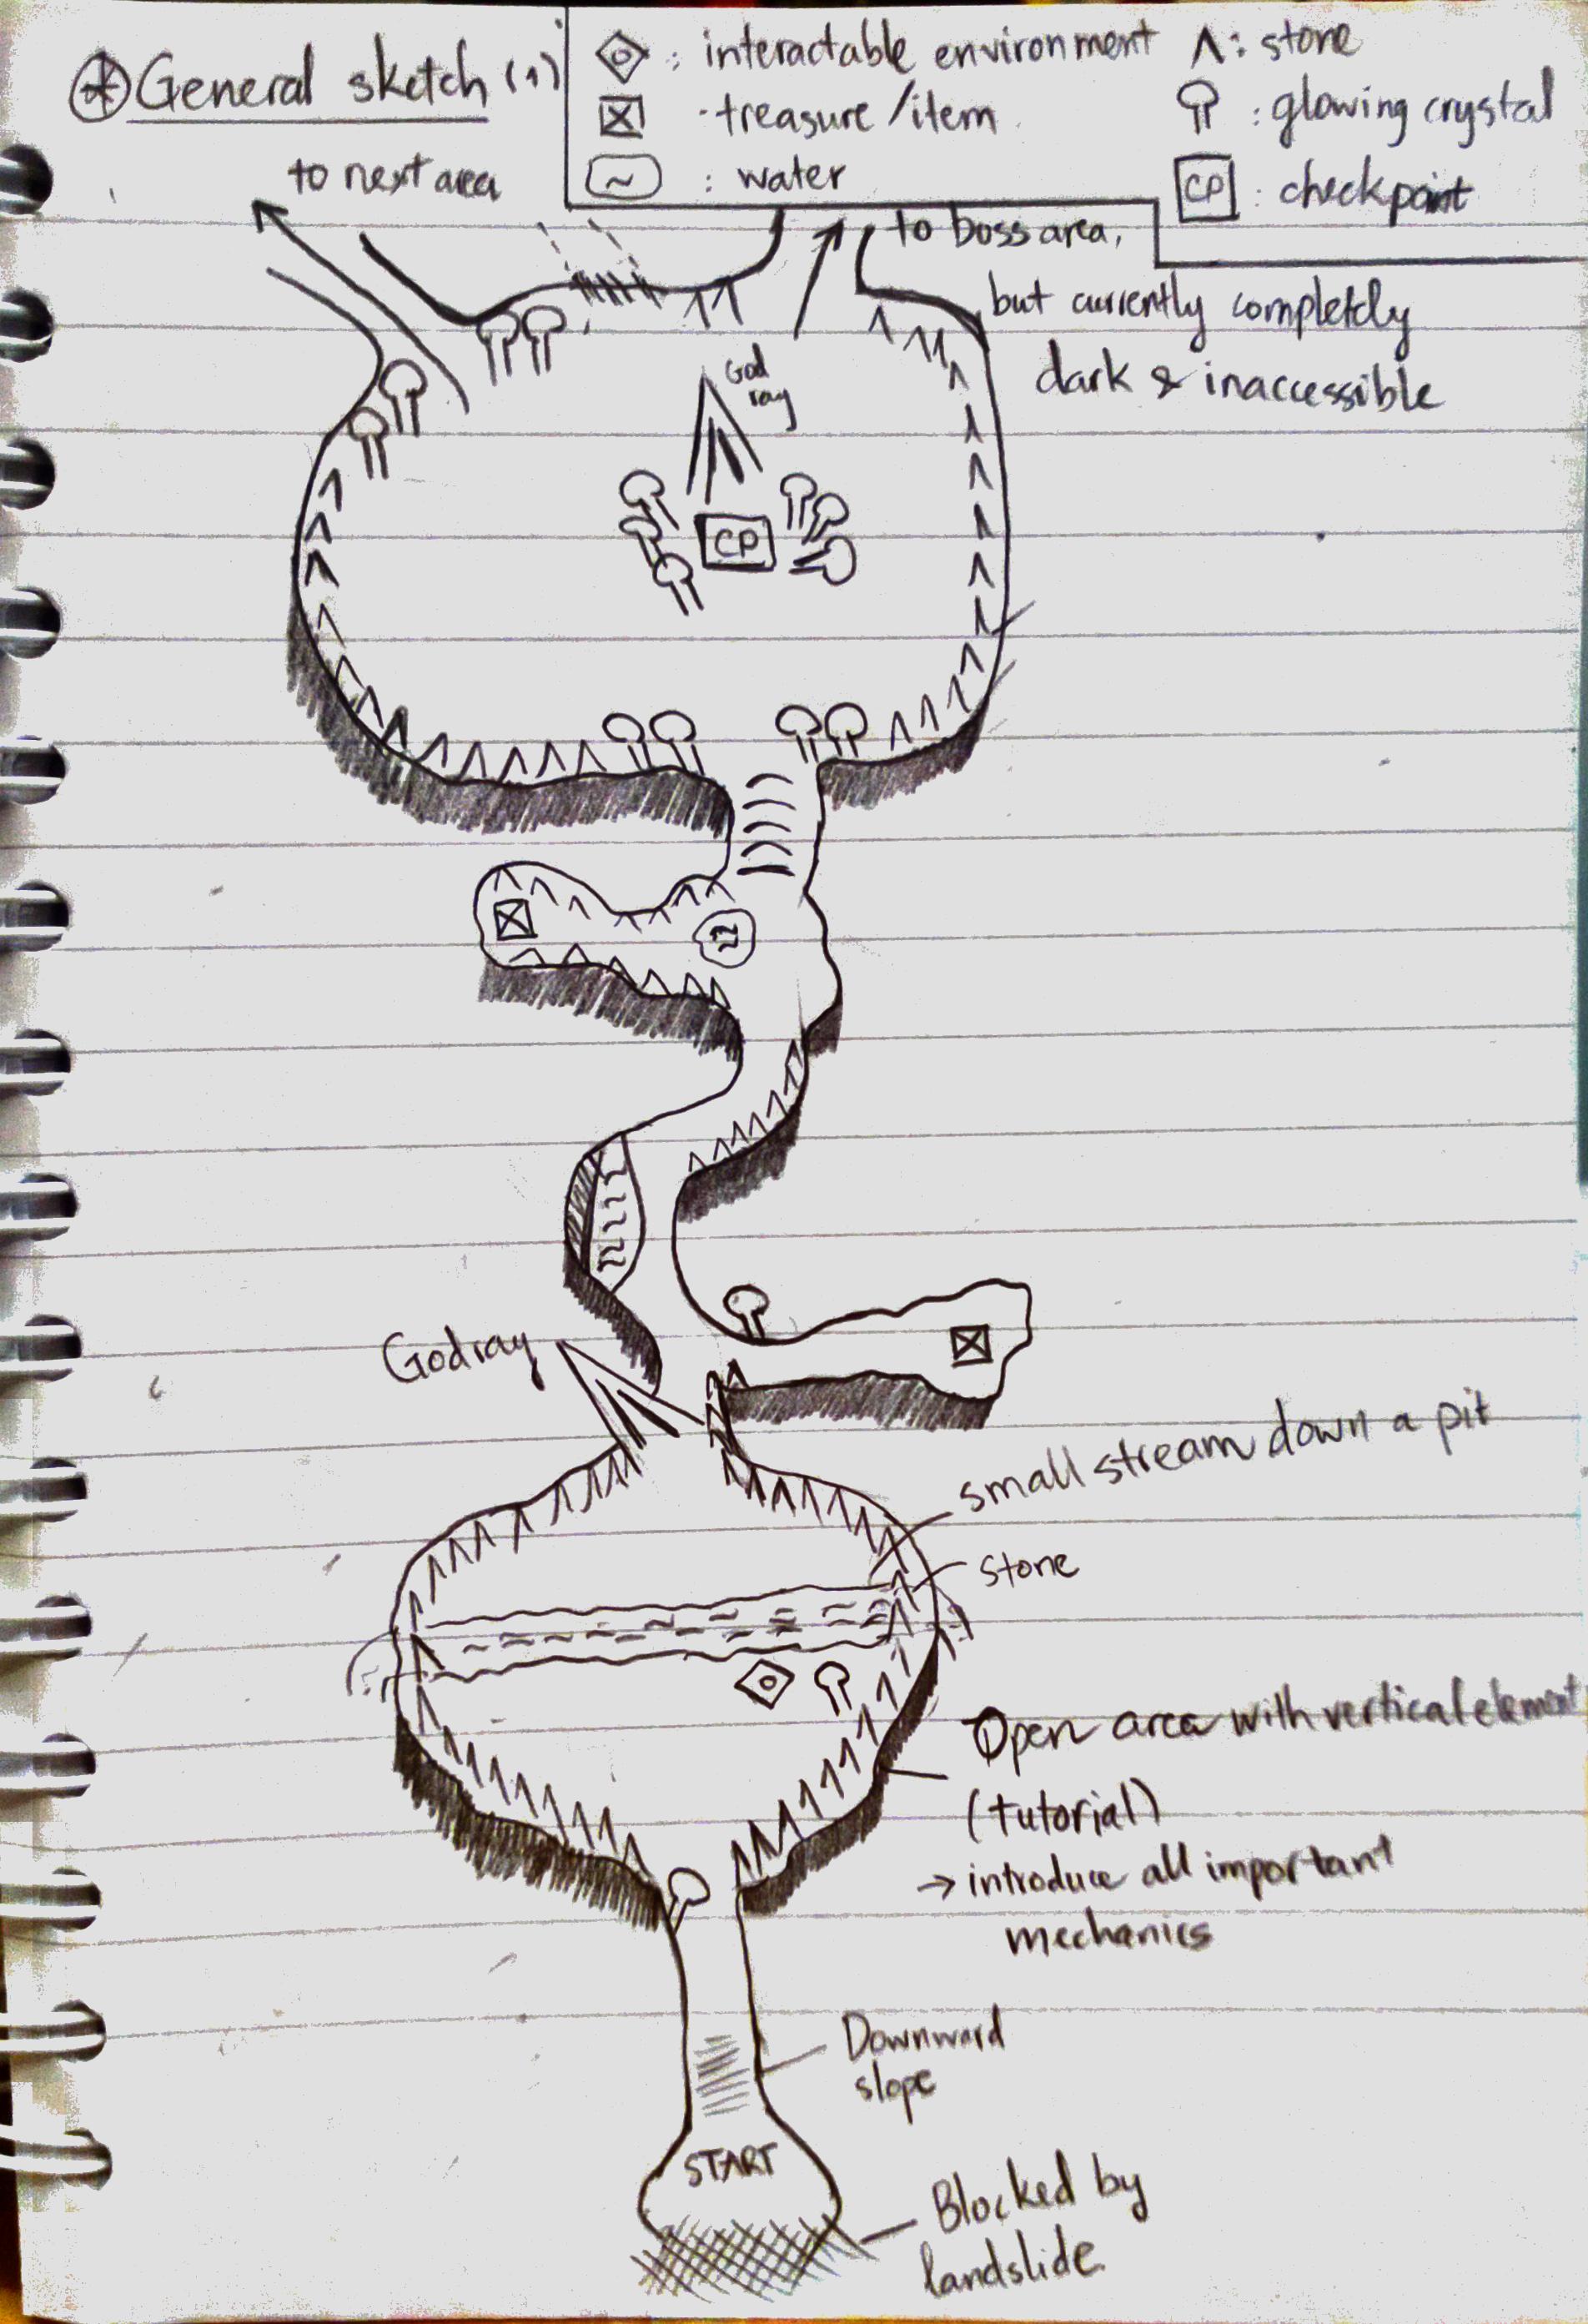 General sketch (1)
: interactable environment
: treasure/item
: water
: stone
: glowing crystal
CP : checkpoint
to next area
to boss area,
but currently completely
dark & inaccessible
God
ray
CP
Godray
small stream down a pit
stone
Open area with vertical element
(tutorial)
→ introduce all important
mechanics
Downward
slope
START
Blocked by
landslide